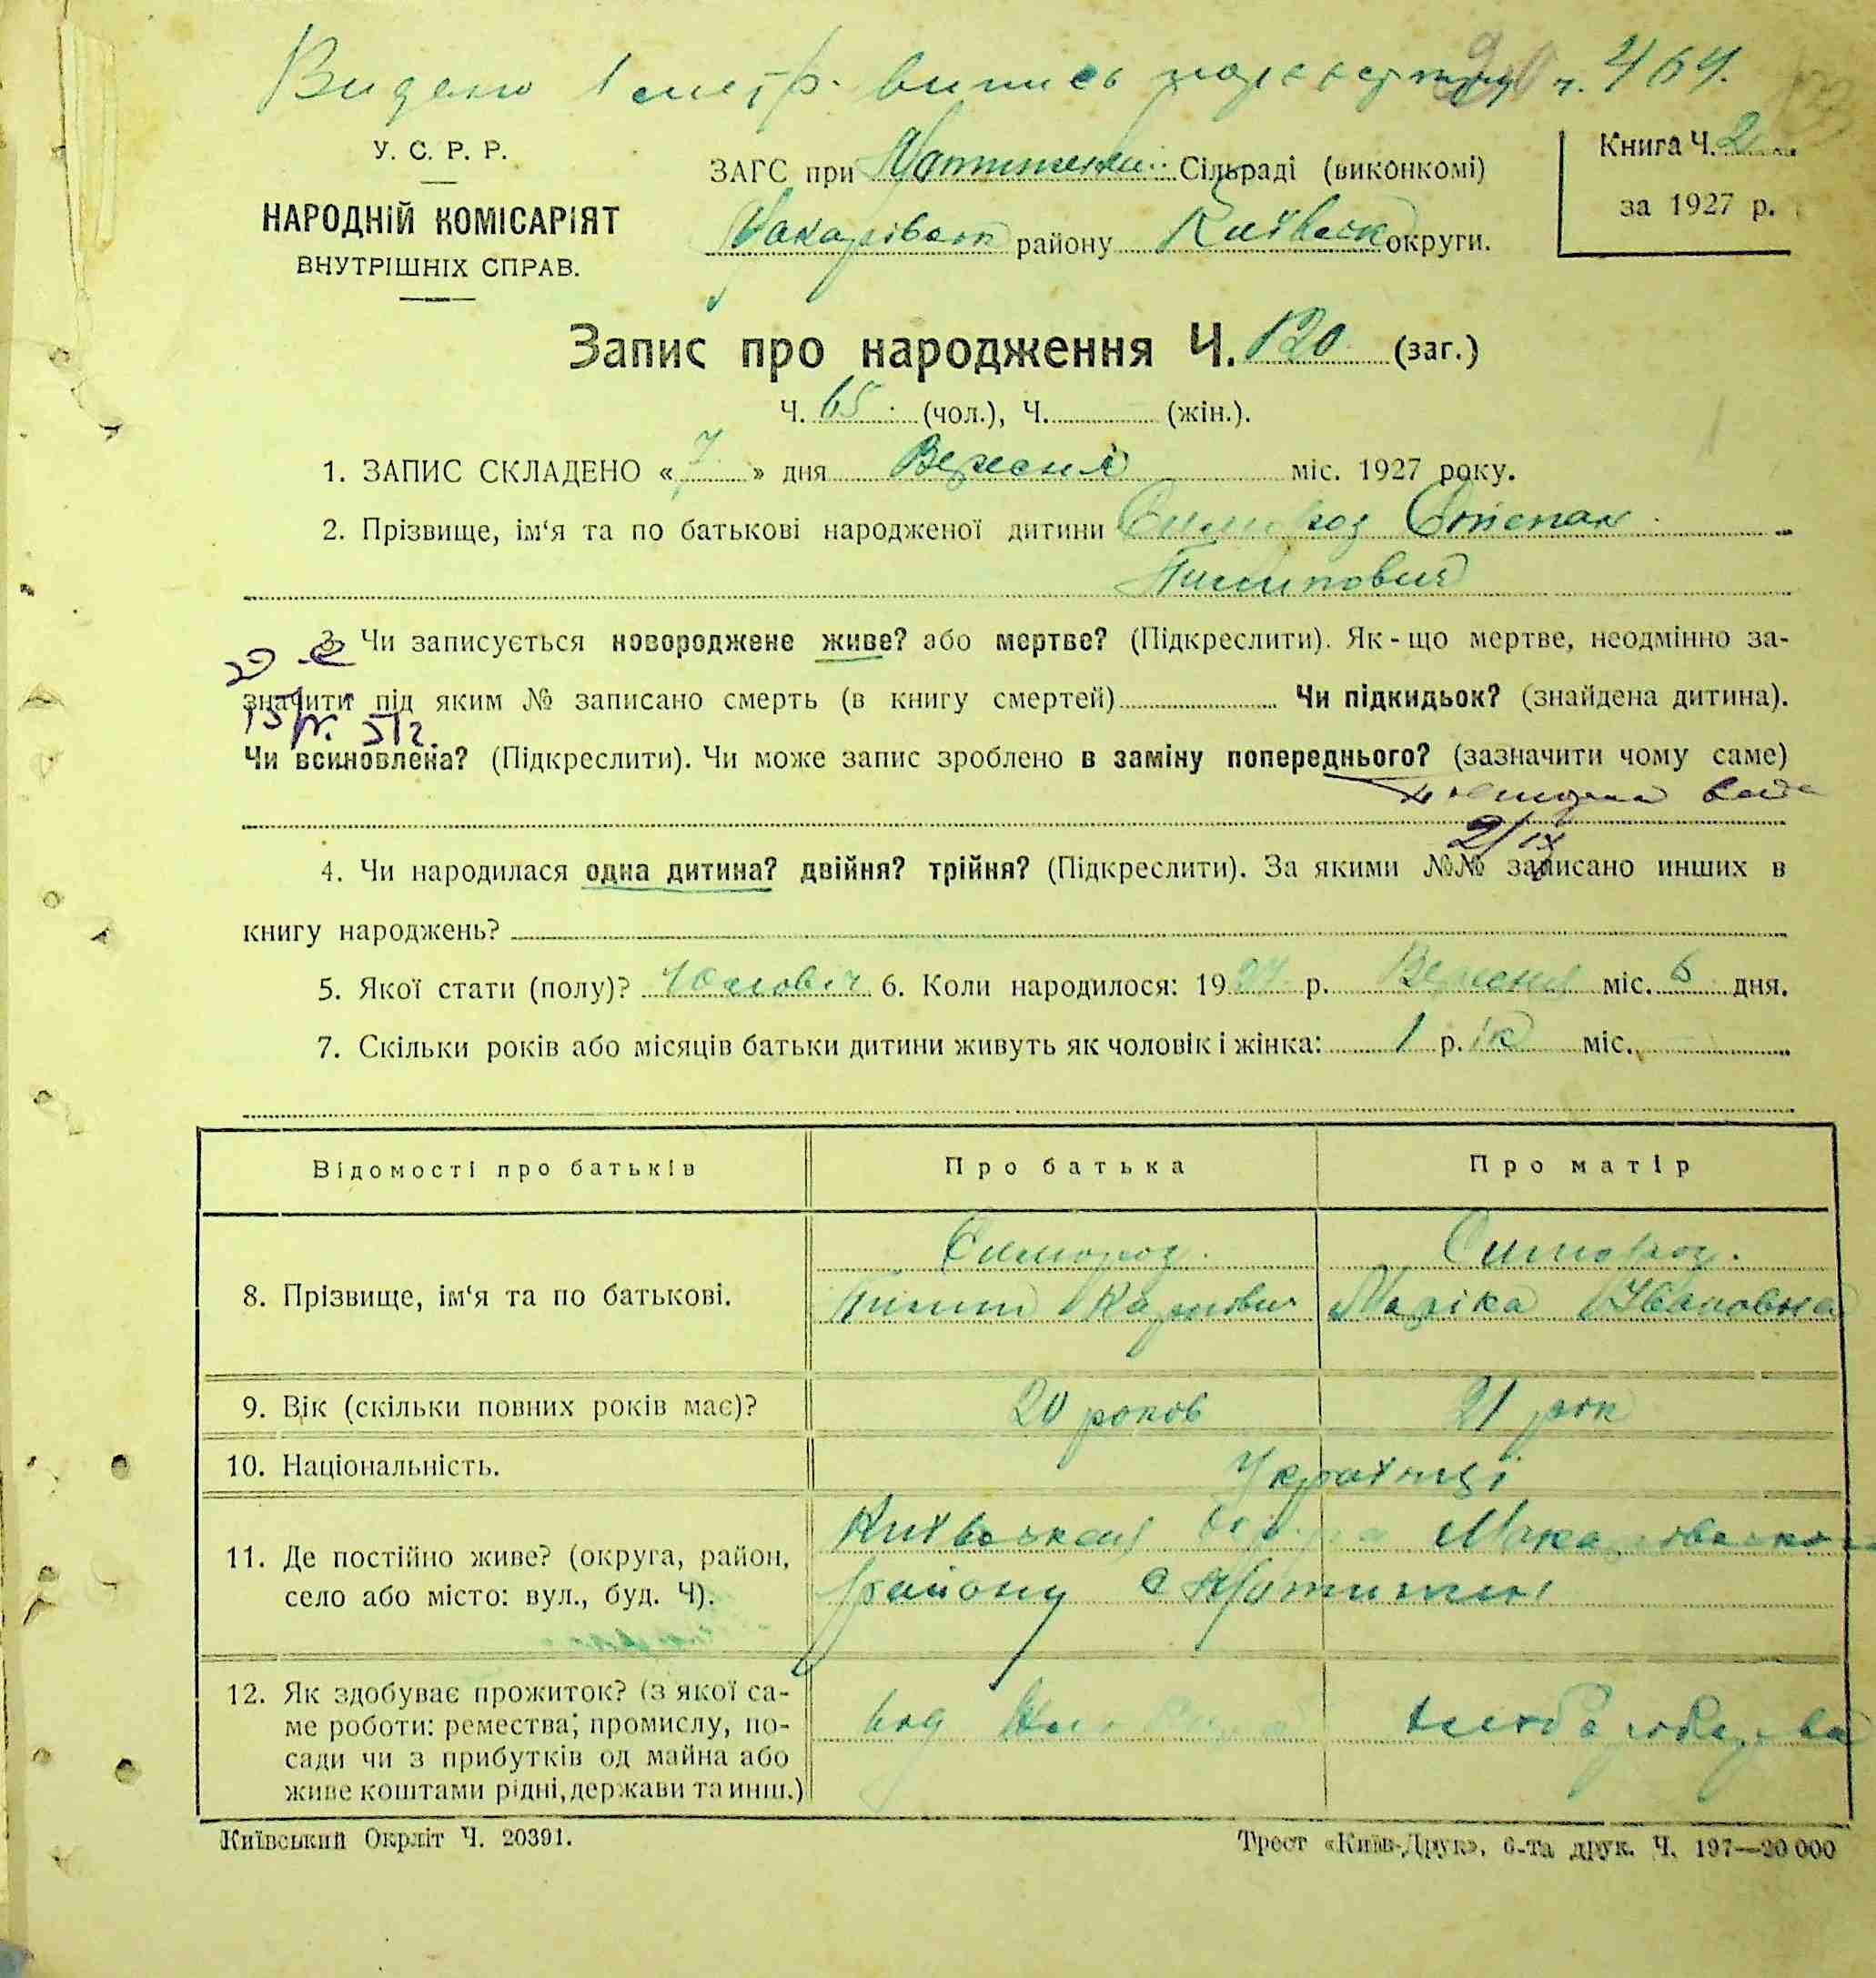 Видано 1 метр. випись ч. 464.
У. С. Р. Р.
НАРОДНІЙ КОМІСАРІЯТ
ВНУТРІШНІХ СПРАВ.
ЗАГС при Мотижен. Сільраді (виконкомі)
Макарівськ району Київськ округи.
Книга Ч. 2
за 1927 р.
Запис про народження Ч. 120 (заг.)
Ч. 65 (чол.), Ч. (жін.).
1. ЗАПИС СКЛАДЕНО «7» дня Вересня міс. 1927 року.
2. Прізвище, ім‘я та по батькові народженої дитини Степан
Пилипович
3. Чи записується новороджене живе? або мертве? (Підкреслити). Як-що мертве, неодмінно за-
значити під яким № записано смерть (в книгу смертей) Чи підкидьок? (знайдена дитина).
Чи всиновлена? (Підкреслити). Чи може запис зроблено в заміну попереднього? (зазначити чому саме)
2/IX
4. Чи народилася одна дитина? двійня? трійня? (Підкреслити). За якими №№ записано инших в
книгу народжень?
5. Якої стати (полу)? Чоловіч 6. Коли народилося: 1927 р. Вересня міс. 6 дня.
7. Скільки років або місяців батьки дитини живуть як чоловік і жінка: 1 р. ік міс.
Відомості про батьків
Про батька
Про матір
8. Прізвище, ім‘я та по батькові.
Пилип Карпович
Маріка Івановна
9. Вік (скільки повних років має)?
20 роков
21 рок
10. Національність.
Українці
11. Де постійно живе? (округа, район,
село або місто: вул., буд. Ч).
Київської Макаровського
району с Мотижин
12. Як здобуває прожиток? (з якої са-
ме роботи: ремества; промислу, по-
сади чи з прибутків од майна або
живе коштами рідні, держави та инш.)
від хлібо
хліборобства
Київський Окрліт Ч. 20391.
Трест «Київ-Друк», 6-та друк. Ч. 197—20 000